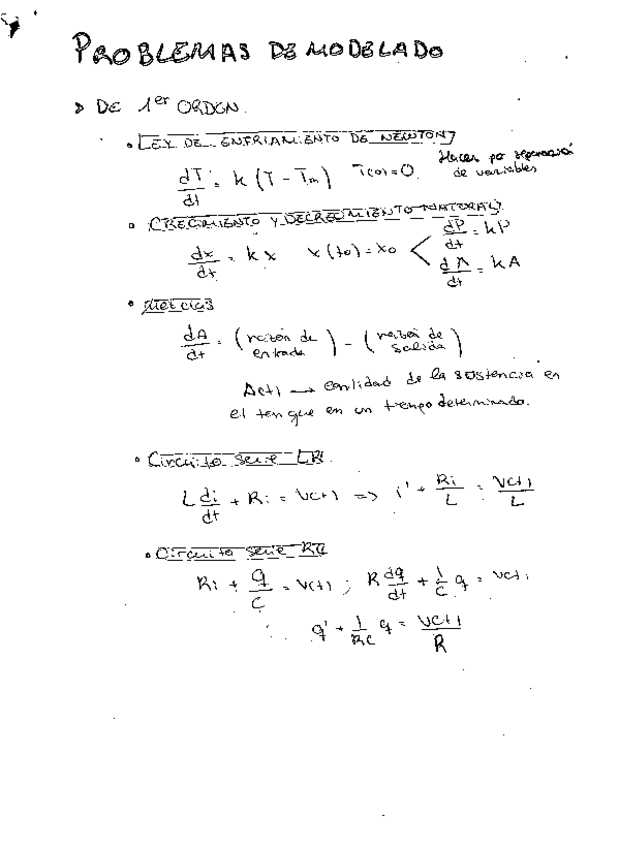 PROBLEMAS DE MODELADO
DE 1er ORDEN.
• LEY DE ENFRIAMIENTO DE NEWTON
dT/dt = k (T - Tm) T(0) = 0 Hacer por separación de variables
• CRECIMIENTO Y DECRECIMIENTO NATURAL
dx/dt = k x x(t0) = x0 < dP/dt = kP
dA/dt = kA
• Mezclas
dA/dt = (razón de entrada) - (razón de salida)
A(t) → cantidad de la sustancia en
el tanque en un tiempo determinado.
• Circuito serie LR
L di/dt + Ri = V(t) => i' + Ri/L = V(t)/L
• Circuito serie RC
Ri + q/C = V(t) ; R dq/dt + 1/C q = V(t)
q' + 1/RC q = V(t)/R